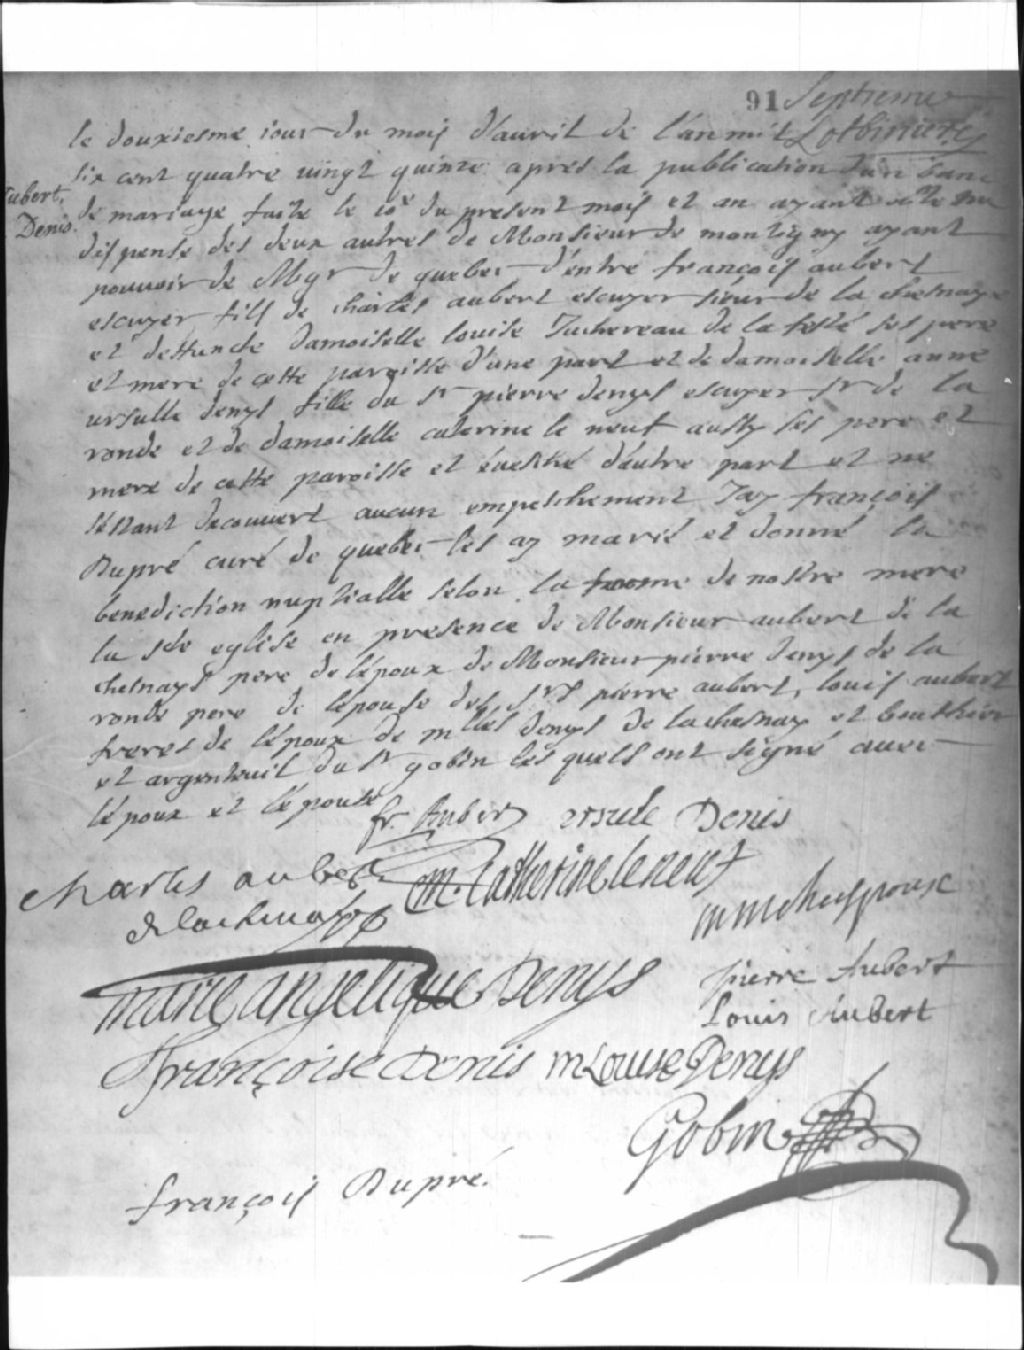 91 Septieme
Lotbiniere
Aubert.
Denis.
le douxiesme iour du mois d'auril de l'an mil
six cent quatre uingt quinze apres la publication d'un ban
de mariage faite le 10e du present mois et an ayant
dispense des deux autres de Monsieur de montigny ayant
pouuoir de Mgr de quebec d'entre françois aubert
escuyer fils de charles aubert escuyer sieur de la chesnaye
et deffuncte damoiselle louise Juchereau de la ferté ses pere
et mere de cette paroisse d'une part et de damoiselle anne
ursulle denys fille du sr pierre denys escuyer sr de la
ronde et de damoiselle caterine le neuf aussy ses pere et
mere de cette paroisse et éuesché d'autre part et ne
s'éstant decouuert aucun empeschement Jay françois
Dupré curé de quebec les ay marié et donné la
benediction nuptialle selon la forme de nostre mere
la ste eglise en presence de Monsieur aubert de la
chesnays pere de l'époux de Monsieur pierre denys de la
ronde pere de l'epouse des srs pierre aubert, louis aubert
freres de l'époux de mlles denys de la chesnay et bouthier
et argenteuil du sr gobin les quels ont signé auec
l'époux et l'épouse
fr. Auber ursule Denis
Charles aubert M. Catherine leneuf
delachenaye
marie angelique Denys pierre Aubert
Louis Aubert
françoise Denis m Louise Denys
Gobin
françois Dupré.